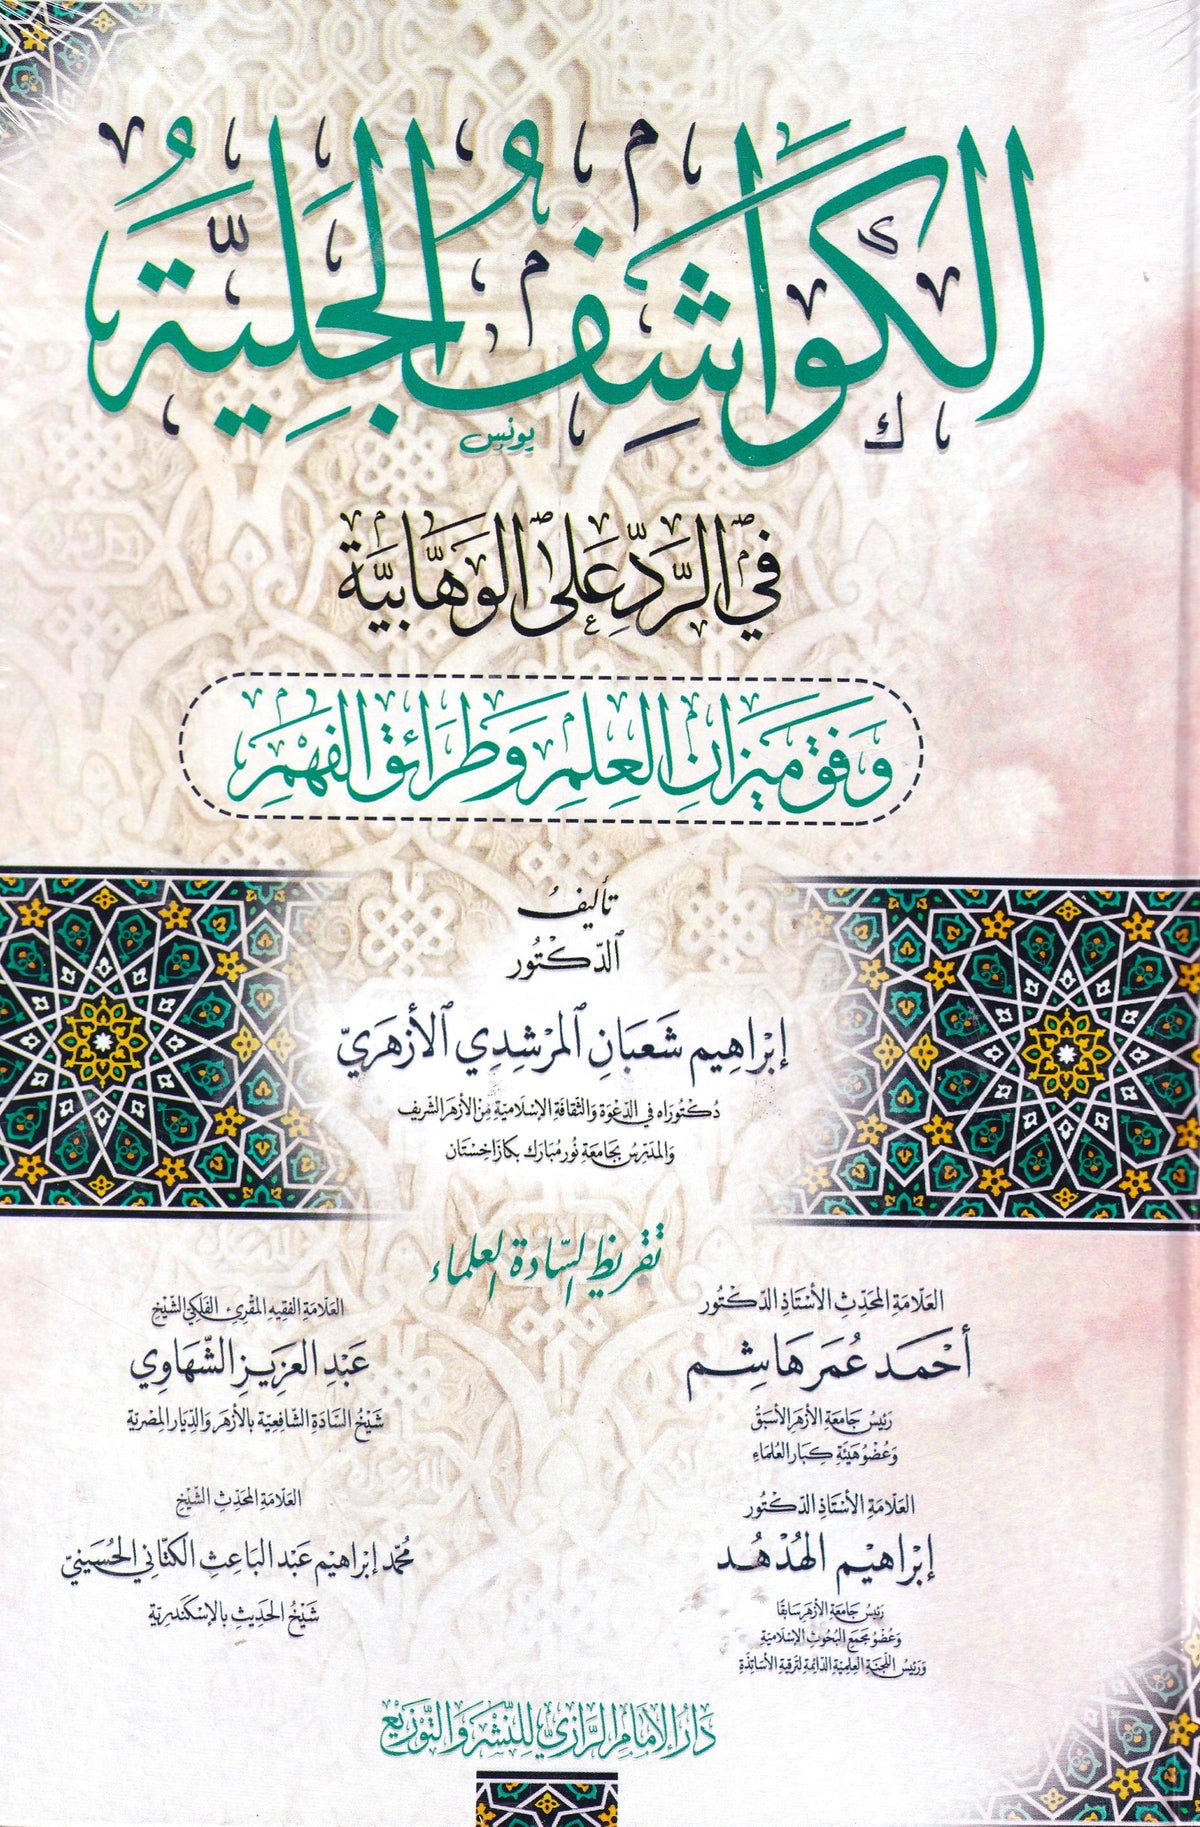 الكَوَاشِفُ الجَلِيَّةُ
يونس
فِي الرَّدِّ عَلَى الوَهَّابِيَّةِ
وَفْقَ مِيزَانِ العِلْمِ وَطَرَائِقِ الفَهْمِ
تأليفُ
الدّكْتُور
إبْرَاهِيم شَعْبَان المرْشِدِي الأزهَرِيّ
دُكْتُورَاه فِي الدَّعْوَة وَالثَّقَافَةِ الإِسْلَامِيَّةِ مِنَ الأزهَرِ الشَّرِيفِ
وَالمدَرِّسُ بِجَامِعَةِ نُور مُبَارَك بِكَازَاخِسْتَان
تقريظ السَّادة العلماء
العَلّامَة المحَدِّث الأسْتَاذ الدّكْتُور
أحْمَد عُمَر هَاشِم
رَئِيسُ جَامِعَةِ الأزْهَرِ الأسْبَقُ
وَعُضْوُ هَيْئَةِ كِبَارِ العُلَمَاءِ
العَلّامَة الفَقِيه المقْرِئ الفَلَكِي الشَّيْخ
عَبْد العَزِيز الشّهَاوِي
شَيْخُ السَّادَةِ الشَّافِعِيَّة بِالأزهَر وَالدِّيَار المِصْرِيَّة
العَلّامَة الأسْتَاذ الدّكْتُور
إبْرَاهِيم الهُدْهُد
رَئِيسُ جَامِعَة الأزهَر سَابِقًا
وَعُضْوُ مَجْمَع البُحُوث الإِسْلَامِيَّة
وَرَئِيسُ اللَّجْنَة العِلْمِيَّة الدَّائِمَة لِتَرْقِيَة الأسَاتِذَة
العَلّامَة المحَدِّث الشَّيْخ
مُحَمَّد إبْرَاهِيم عَبْد البَاعِث الكتّانِي الحُسَيْنِيّ
شَيْخُ الحَدِيثِ بِالإسْكَنْدَرِيَّة
دَارُ الإمَامِ الرَّازِيِّ لِلنَّشْرِ وَالتَّوْزِيْعِ